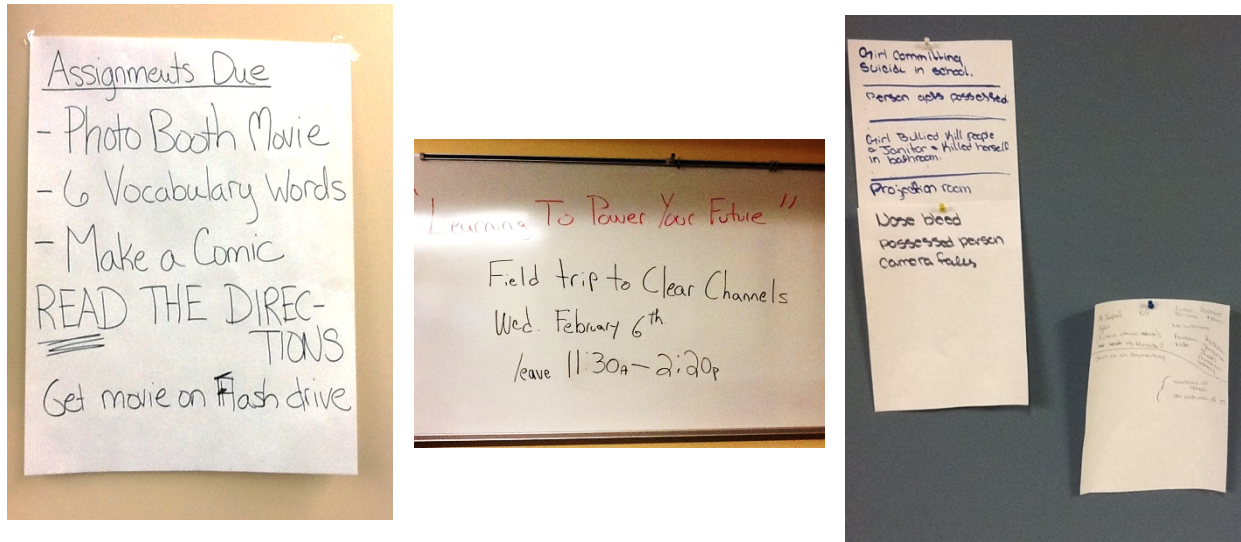 Assignments Due
- Photo Booth Movie
- 6 Vocabulary Words
- Make a Comic
READ THE DIREC-
TIONS
Get movie on Flash drive
"Learning To Power Your Future"
Field trip to Clear Channels
Wed. February 6th
leave 11:30A - 2:20p
Girl committing
Suicide in school.
Person gets possessed
Girl Bullied Kill people
a Janitor + Killed herself
in bathroom.
Projection room
Nose bleed
possessed person
camera falls